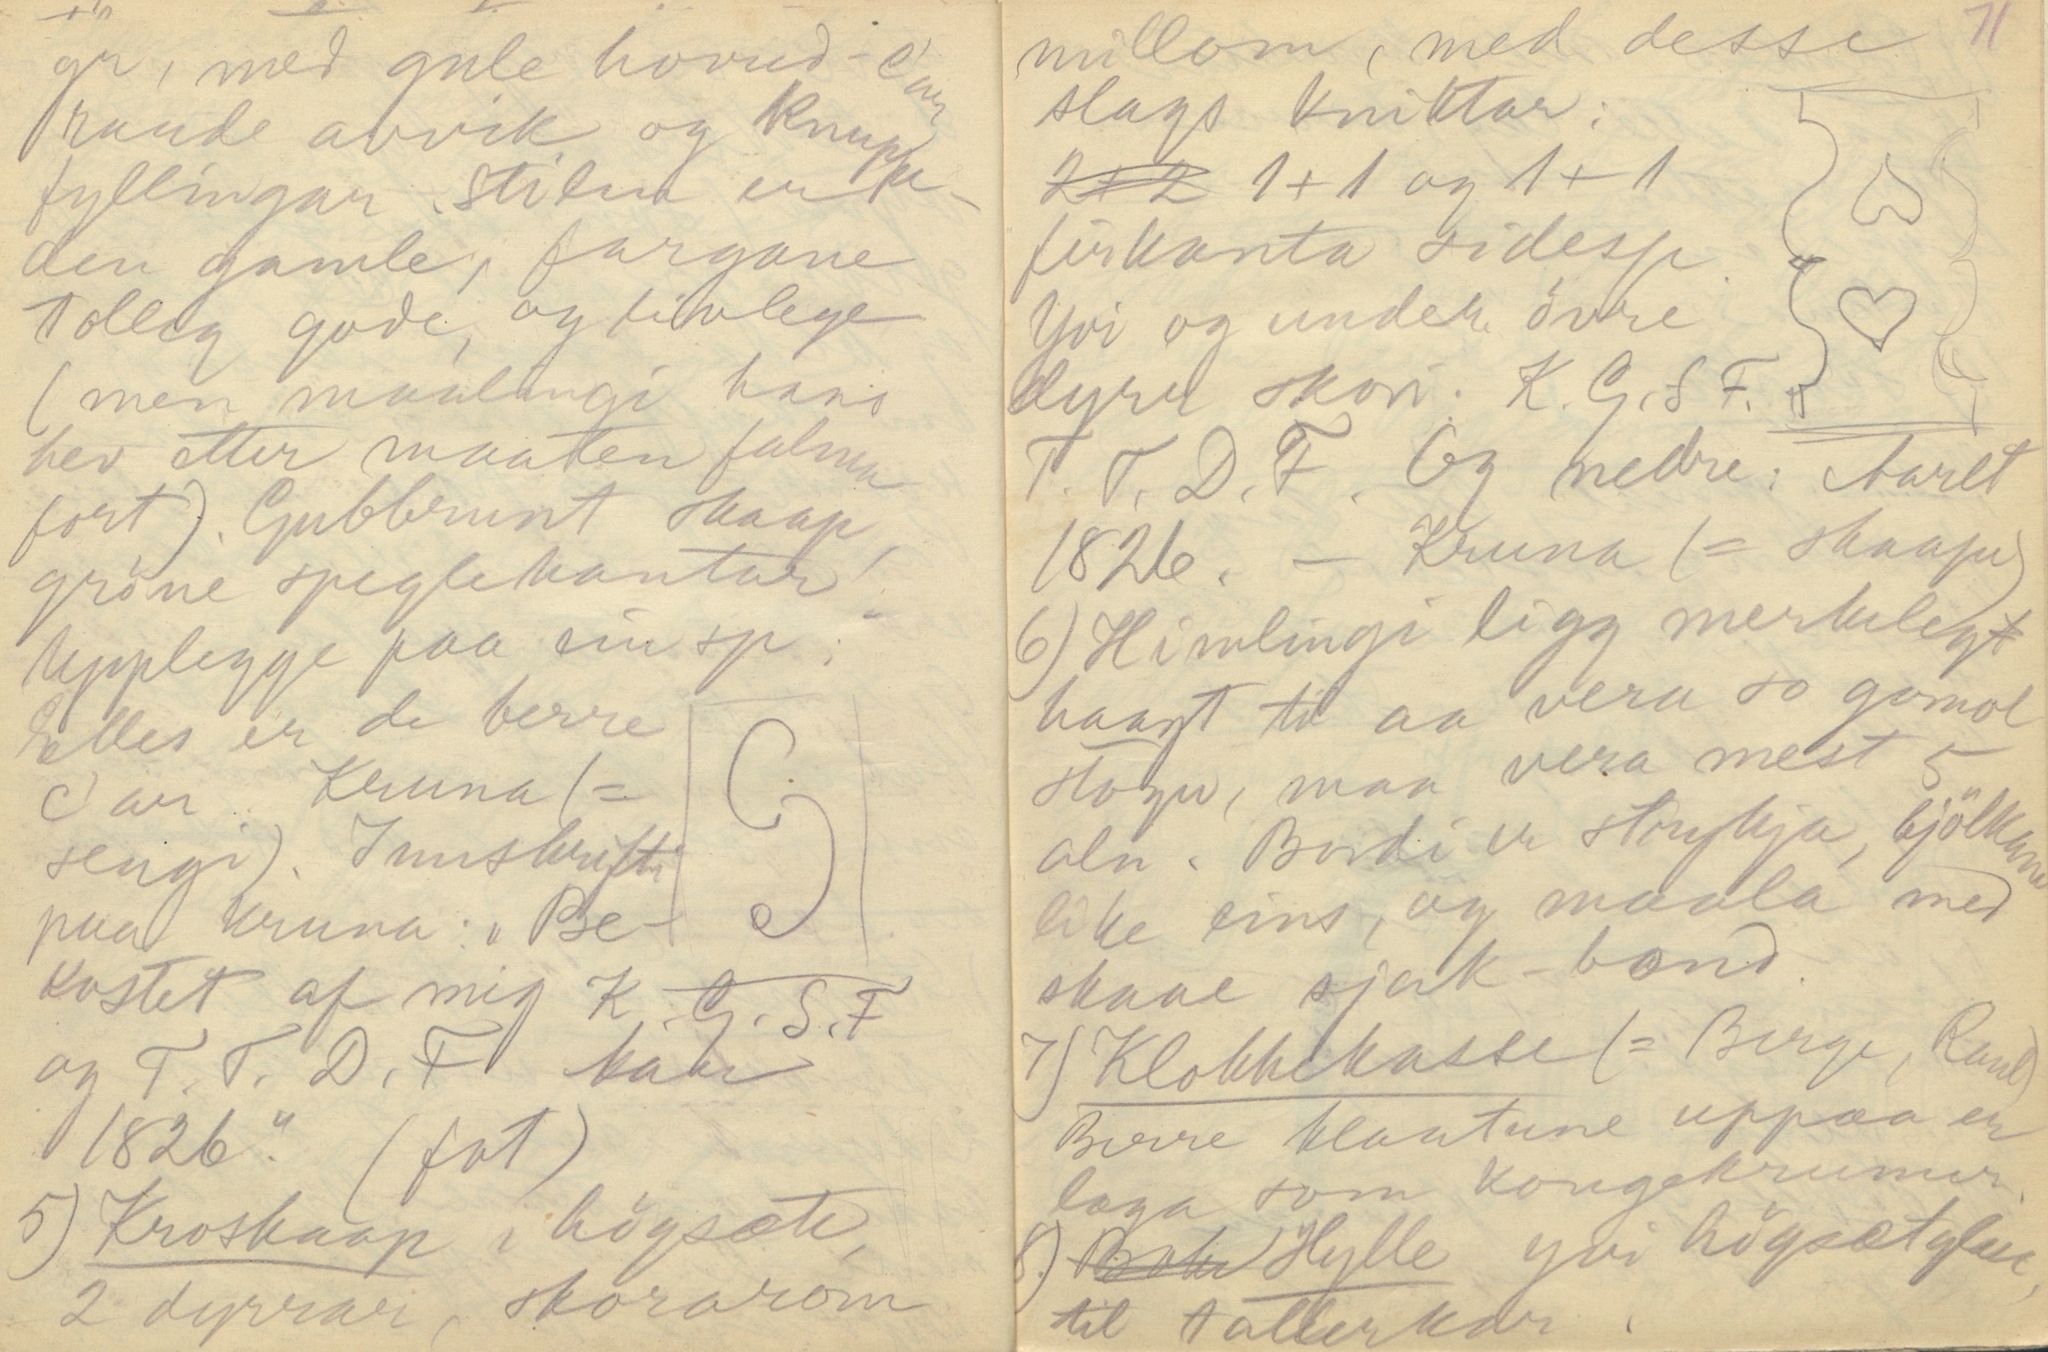 gr, med gule hovud-C'ar
raude avvik og Knupp
fyllingar. Stilen er
den gamle, fargane
tolleg gode, og livlege
(men maalingi hans
hev etter maaten falma
fort). Gubbrunt skaap,
gröne speglekantar!
Upplegge paa ein sp.:
Elles er de berre
C'ar. Kruna (=
sengi). Innskrifti
paa kruna: „Be-
kostet af mig K. G. S. F
og T. T. D. F Aar
1826". (fot)
5) Kroskaap i högsæte,
2 dyrrar, skorarom
71
millom, med desse
slags knittar:
2+2 1+1 og 1+1
firkanta sidesp.
Yvi og under övre
dyri skori. K. G. S F.
T. T. D. F. Og nedre: Aaret
1826. — Kruna (= skaape)
6) Himlingi ligg merkelegt
haagt til aa vera so gomol
stogu, maa vera mest 5
aln. Bordi er strykja, bjölkane
like eins, og maala med
skaae sjak-bond.
7) Klokkekasse (= Berge, Raul)
Berre klaatune uppaa er
laga som kongekrunur.
8) Hylle yvi högsætglase,
til tallerkar.